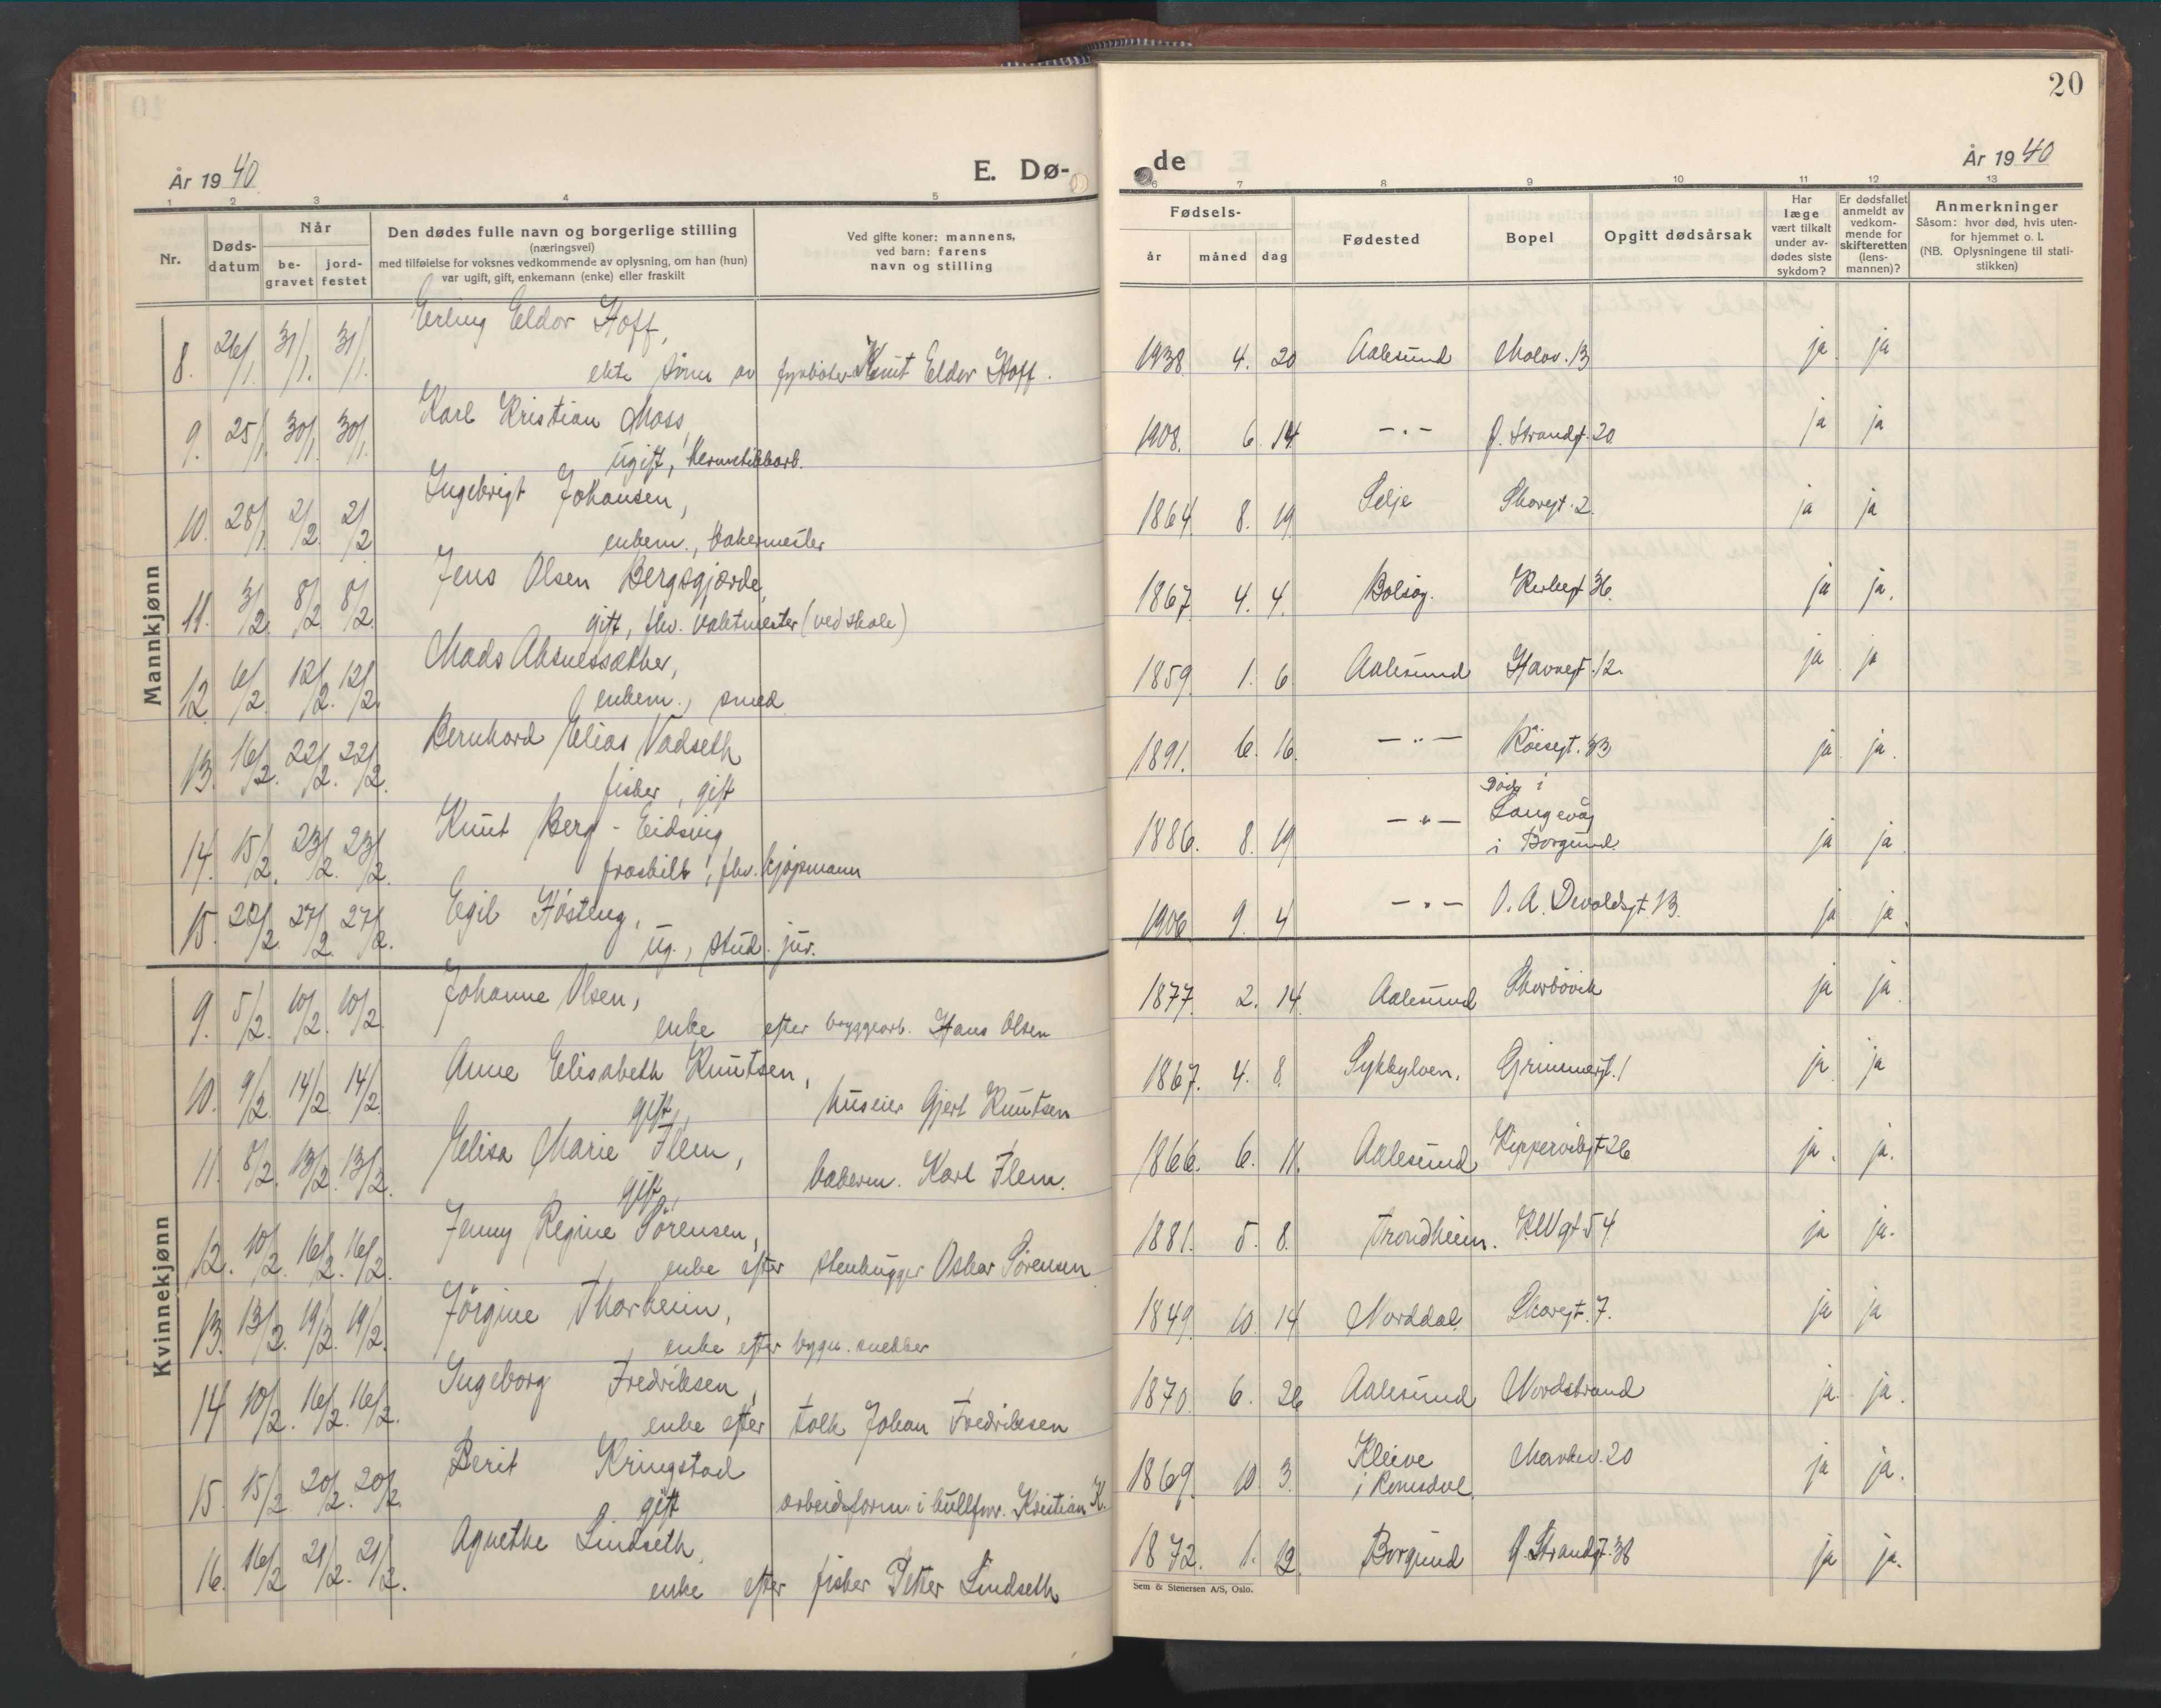 År 1940
E. Dø-
1 2 3 4 5
Nr.
Døds-
datum
Når
be-
gravet
jord-
festet
Den dødes fulle navn og borgerlige stilling
(næringsvei)
med tilføielse for voksnes vedkommende av oplysning, om han (hun)
var ugift, gift, enkemann (enke) eller fraskilt
Ved gifte koner: mannens,
ved barn: farens
navn og stilling
Mannkjønn
8. 26/1. 31/1. 31/1. Erling Eldor Hoff,
ekte sønn av fyrbøter Knut Eldor Hoff.
9. 25/1. 30/1. 30/1. Karl Kristian Moss,
ugift, hermetikkarb.
10. 28/1. 2/2. 2/2 Ingebrigt Johansen,
enkem., bakermester
11. 3/2. 8/2 8/2. Jens Olsen Bergsgjærde,
gift, fhv. vaktmester (ved skole)
12. 6/2. 12/2. 12/2. Mads Aksnessæther,
enkem., smed
13. 16/2. 22/2. 22/2. Bernhard Elias Vadseth
fisker, gift
14. 15/2. 23/2. 23/2. Knut Berg-Eidsvig
fraskilt, fhv. kjøpmann
15. 22/2. 27/2. 27/2. Egil Hösteng,
ug., stud. jur.
Kvinnekjønn
9. 5/2. 10/2. 10/2. Johanne Olsen,
enke efter bryggearb. Hans Olsen
10. 9/2. 14/2. 14/2. Anne Elisabeth Knutsen,
gift, huseier Gjert Knutsen
11. 8/2. 13/2. 13/2. Elisa Marie Flem,
gift, bakerm. Karl Flem.
12. 10/2. 16/2. 16/2. Jenny Regine Sörensen,
enke efter stenhugger Oskar Sörensen
13. 13/2. 19/2. 19/2. Jörgine Thorheim,
enke efter bygn. snekker
14 10/2. 16/2. 16/2. Ingeborg Fredriksen,
enke efter tolk Johan Fredriksen
15. 15/2 20/2. 20/2. Berit Kringstad
gift arbeidsform. i kullforr. Kristian K.
16. 16/2 21/2. 21/2. Agnethe Lindseth,
enke efter fisker Petter Lindseth
20
de
År 1940
6 7 8 9 10 11 12 13
Fødsels-
år måned dag
Fødested
Bopel
Opgitt dødsårsak
Har
læge
vært tilkalt
under av-
dødes siste
sykdom?
Er dødsfallet
anmeldt av
vedkom-
mende for
skifteretten
(lens-
mannen)?
Anmerkninger
Såsom: hvor død, hvis uten-
for hjemmet o. l.
(NB. Oplysningene til stati-
stikken)
1938. 4. 20 Aalesund Molov. 13 ja ja
1908. 6. 14 -"- Ø. Strandgt. 20 ja ja
1864. 8. 19. Selje Skaregt. 2. ja ja
1867. 4. 4. Bolsöy. Kirkegt 36. ja ja.
1859. 1. 6 Aalesund Havnegt. 12. ja ja
1891. 6. 16. -"- Röisegt. 33 ja ja.
död i
1886. 8. 19 -"- Langevåg
i Borgund. ja ja
1906 9. 4 -"- O. A. Devoldsgt. 13. ja ja.
1877. 2. 14. Aalesund Skarbövik ja ja.
1867. 4. 8. Sykkylven. Grimmergt. 1 ja ja
1866. 6. 11. Aalesund Kippervikgt 26 ja. ja.
1881. 5. 8. Trondheim. KWgt 54 ja ja.
1849. 10. 14 Norddal. Skaregt. 7. ja ja
1870. 6. 26 Aalesund Nordstrand ja. ja.
1869. 10. 3. Kleive
i Romsdal. 20 ja ja.
1872. 1. 12. Borgund Ø. Strandgt. 38 ja ja.
Sem & Stenersen A/S, Oslo.